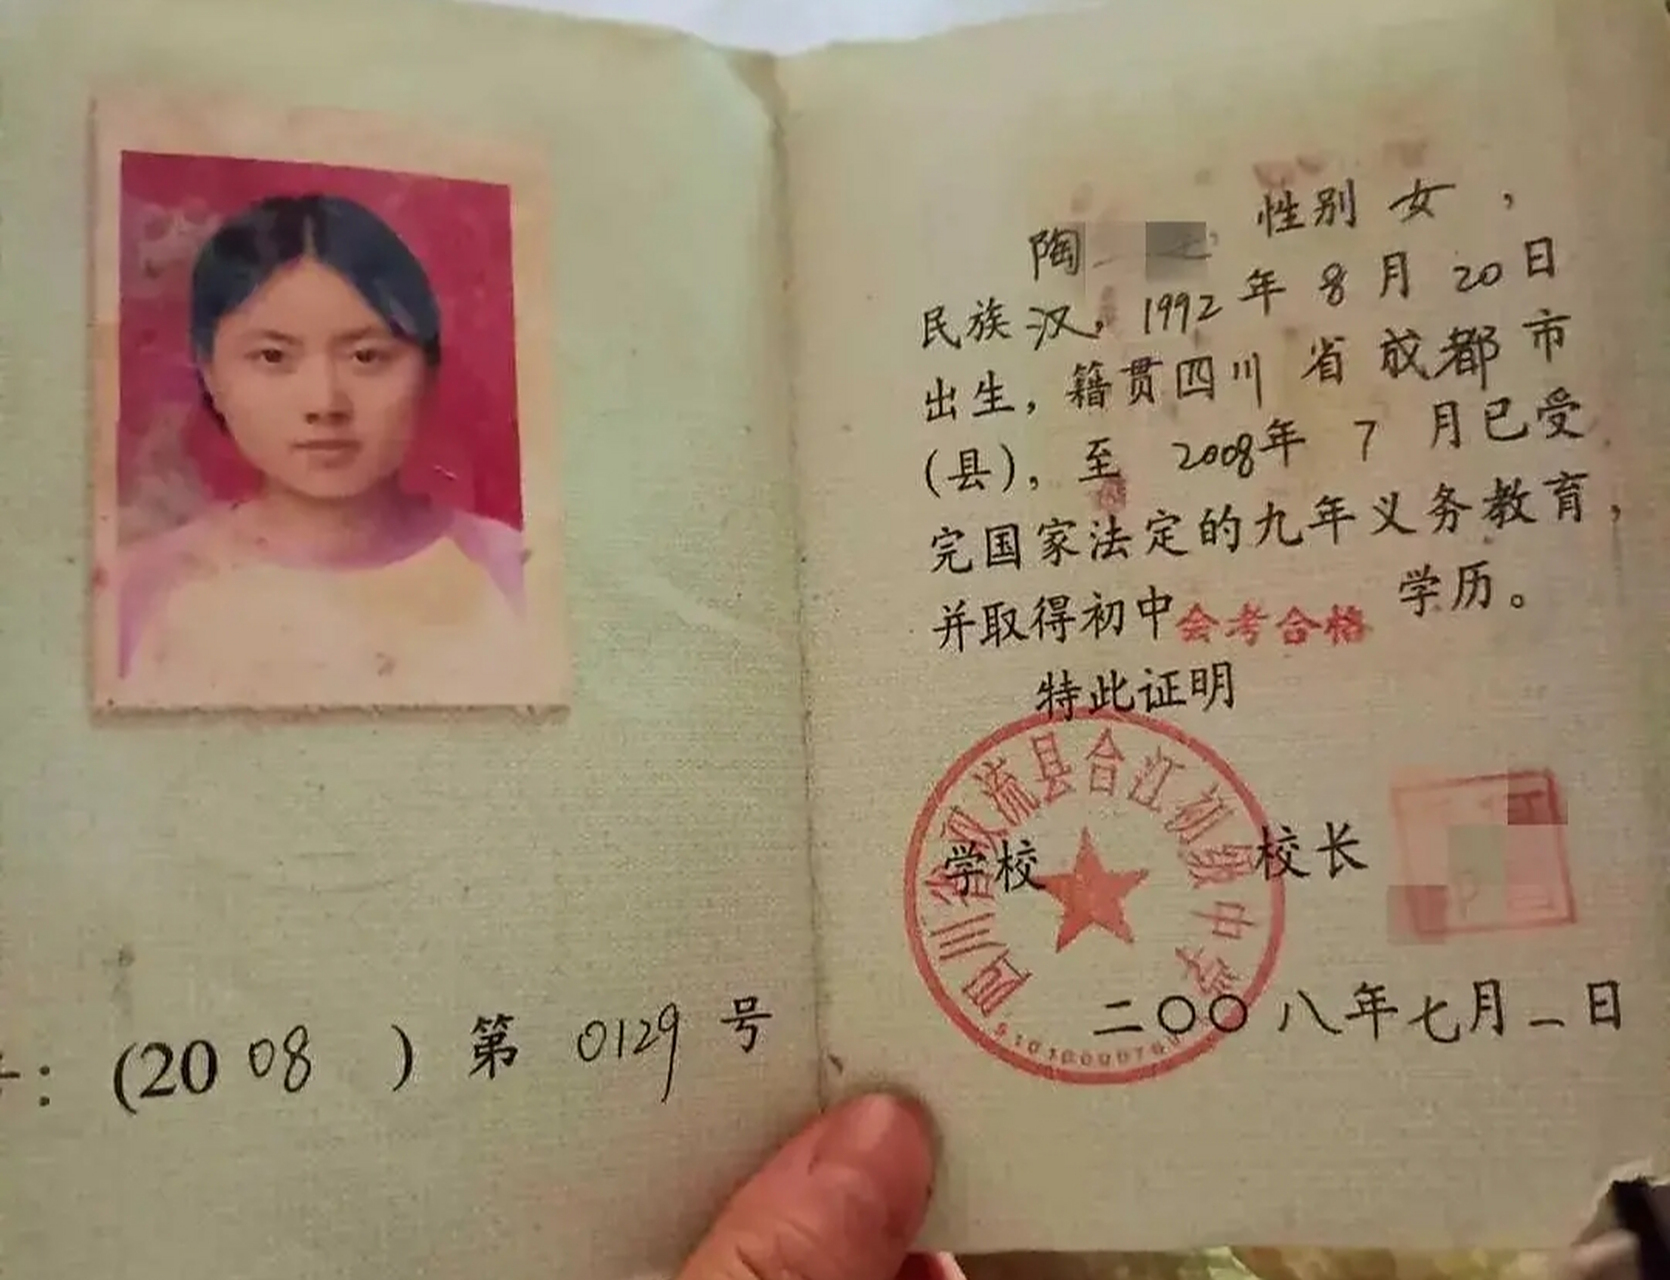 ：(2008 ) 第 0129 号
陶 性别 女，
民族 汉，1992 年 8 月 20 日
出生，籍贯 四川 省 成都 市
(县)，至 2008 年 7 月已受
完国家法定的九年义务教育，
并取得初中 会考合格 学历。
特此证明
四川省双流县合江初级中学
学校 校长
二〇〇八年七月一日